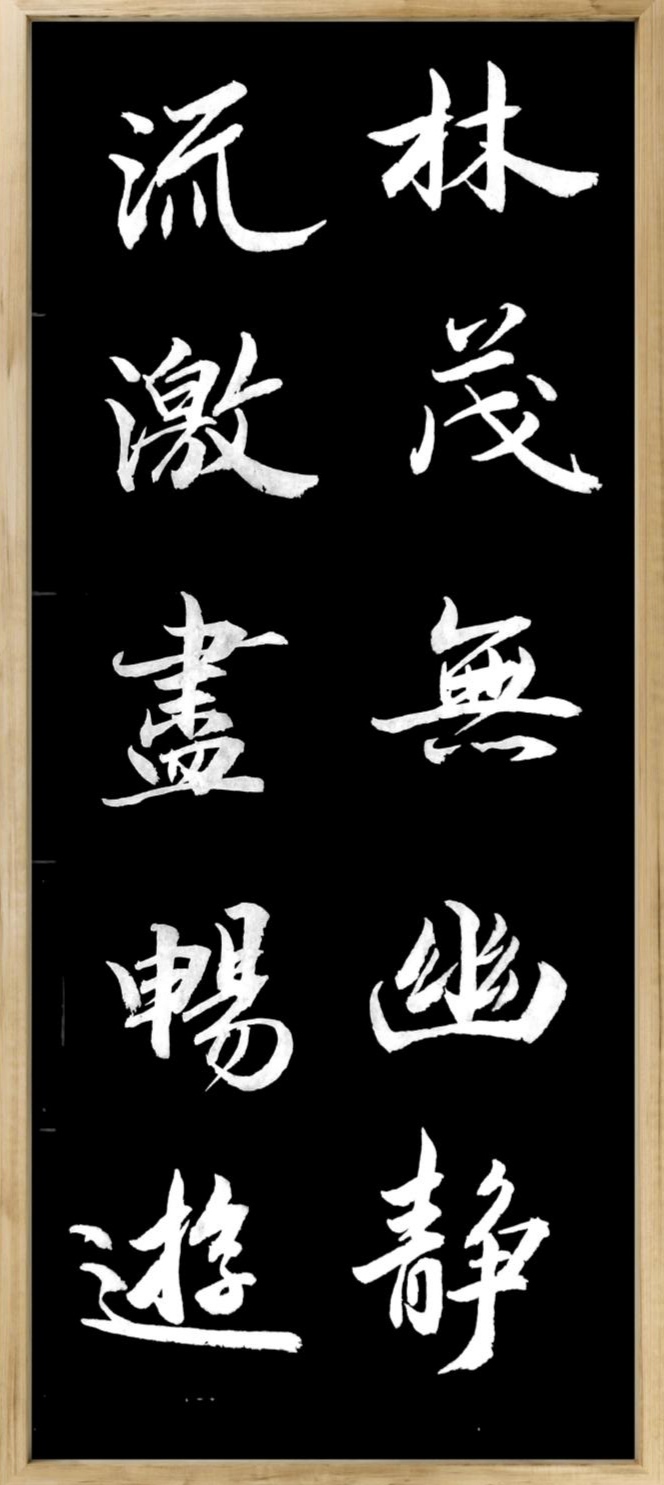 林茂無幽静
流激盡暢遊